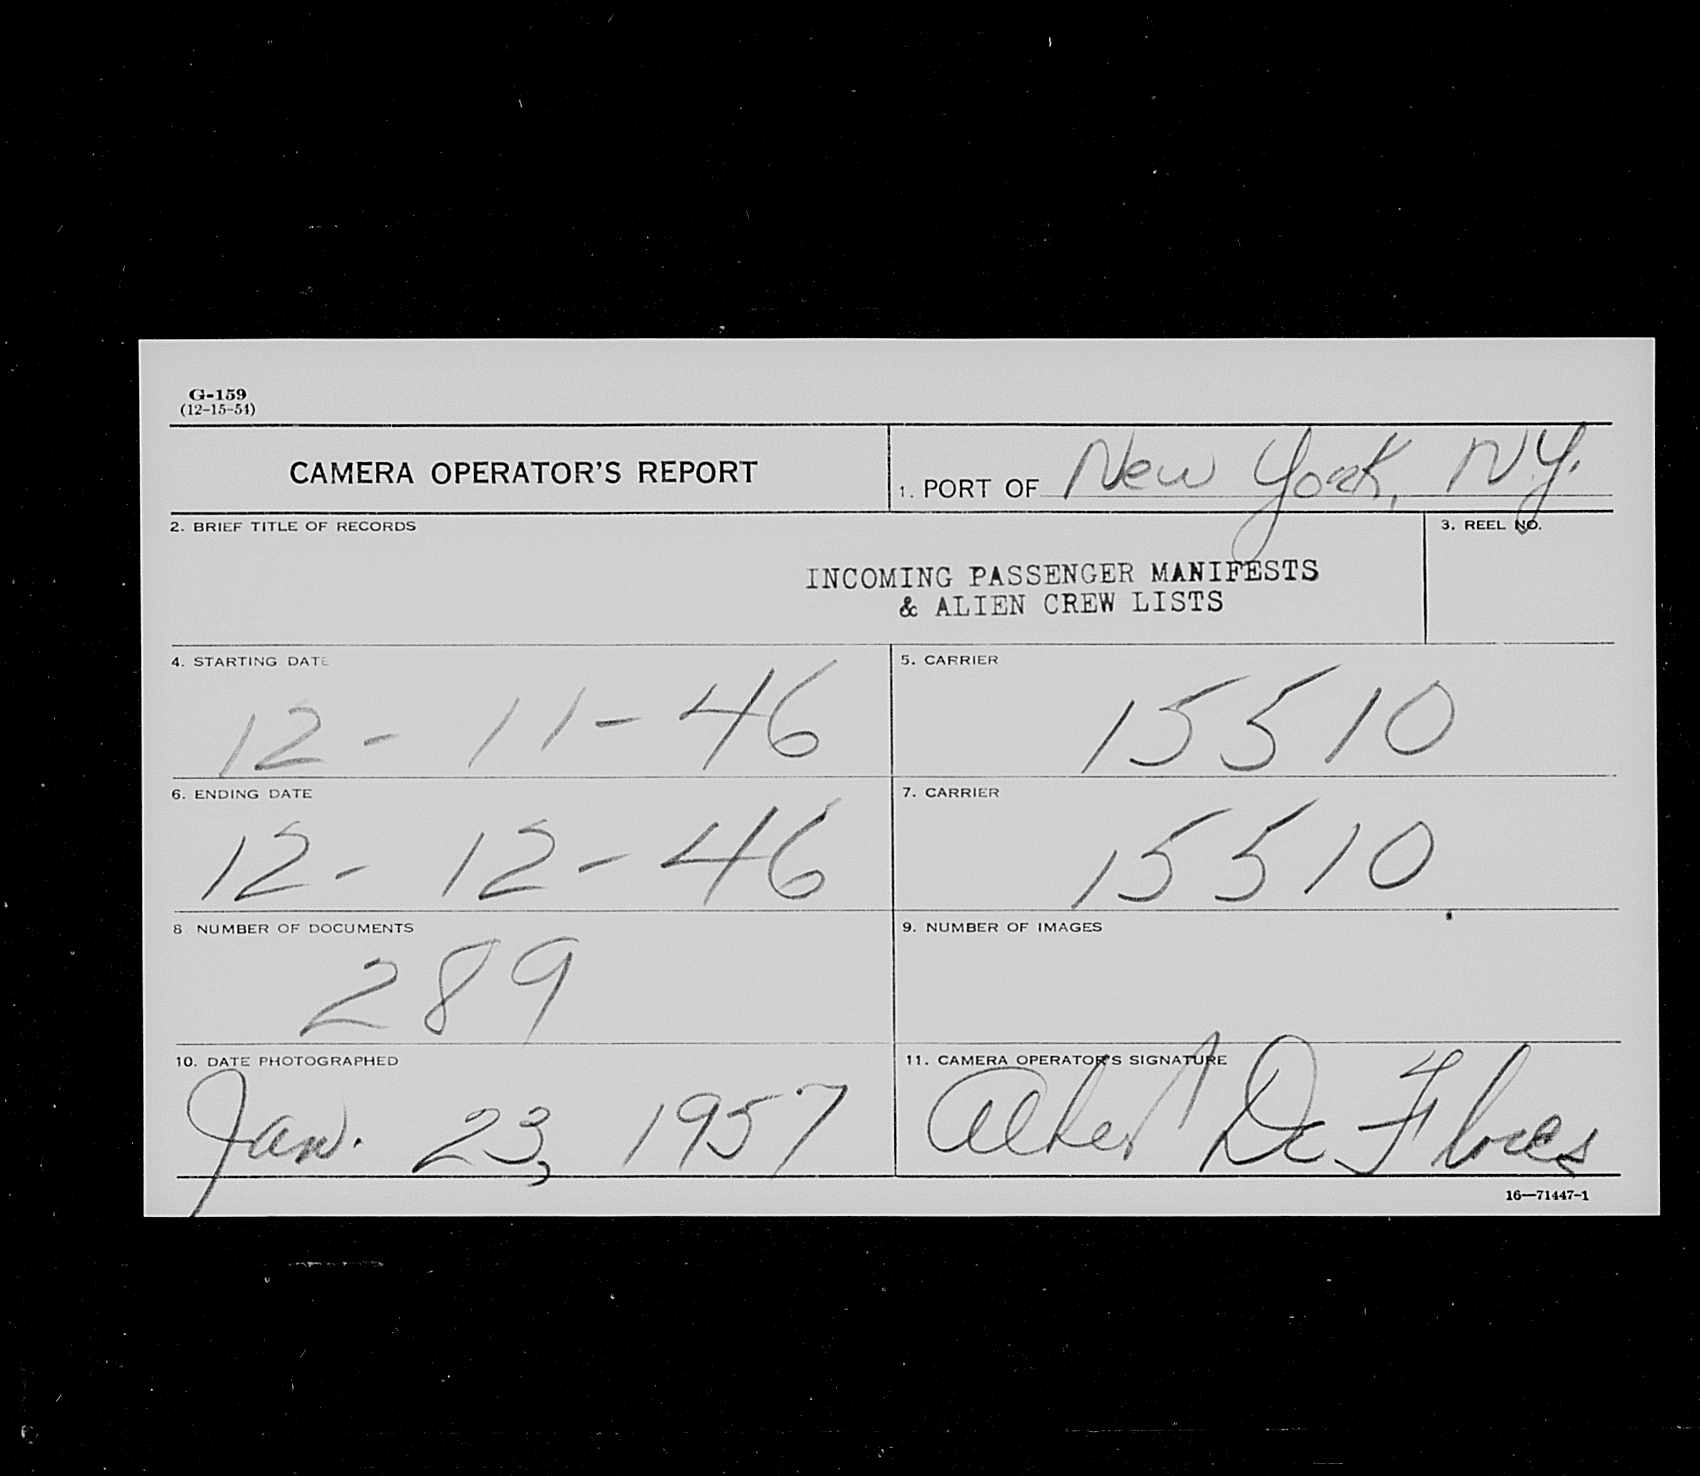 G-159
(12-15-54)
CAMERA OPERATOR'S REPORT
1. PORT OF New York, N.Y.
2. BRIEF TITLE OF RECORDS
3. REEL NO.
INCOMING PASSENGER MANIFESTS
& ALIEN CREW LISTS
4. STARTING DATE
12-11-46
5. CARRIER
15510
6. ENDING DATE
12-12-46
7. CARRIER
15510
8 NUMBER OF DOCUMENTS
289
9. NUMBER OF IMAGES
10. DATE PHOTOGRAPHED
Jan. 23, 1957
11. CAMERA OPERATOR'S SIGNATURE
De Flores
16—71447-1